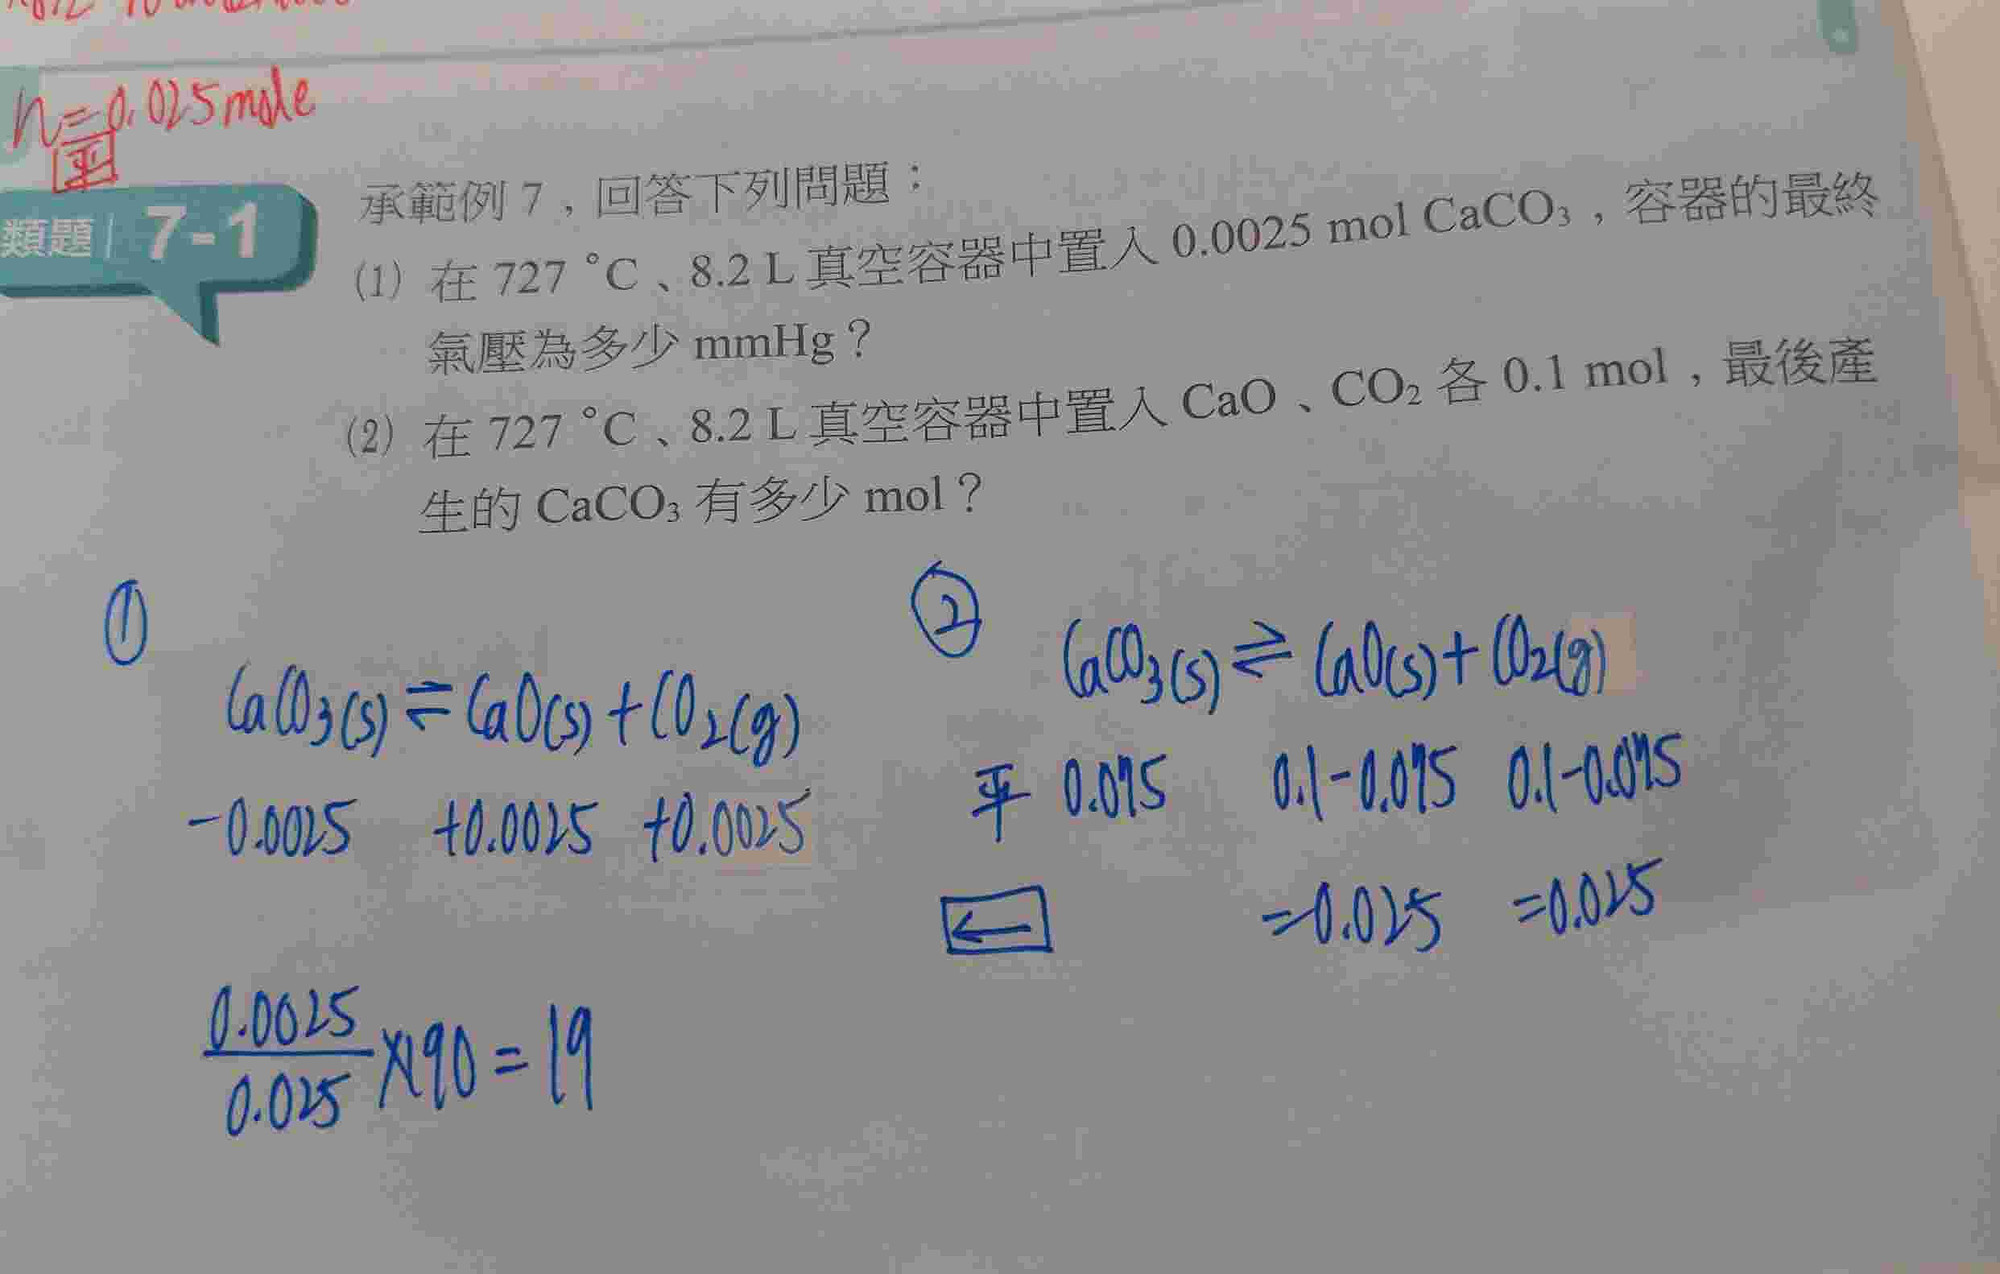 n=0.025mole
平
類題 7-1
承範例 7，回答下列問題：
(1) 在 727 °C、8.2 L 真空容器中置入 0.0025 mol CaCO₃，容器的最終
氣壓為多少 mmHg？
(2) 在 727 °C、8.2 L 真空容器中置入 CaO、CO₂ 各 0.1 mol，最後產
生的 CaCO₃ 有多少 mol？
①
CaCO₃(s) ⇌ CaO(s) + CO₂(g)
-0.0025 +0.0025 +0.0025
0.0025
0.025 ×190 = 19
②
CaCO₃(s) ⇌ CaO(s) + CO₂(g)
平 0.075 0.1-0.075 0.1-0.075
← =0.025 =0.025